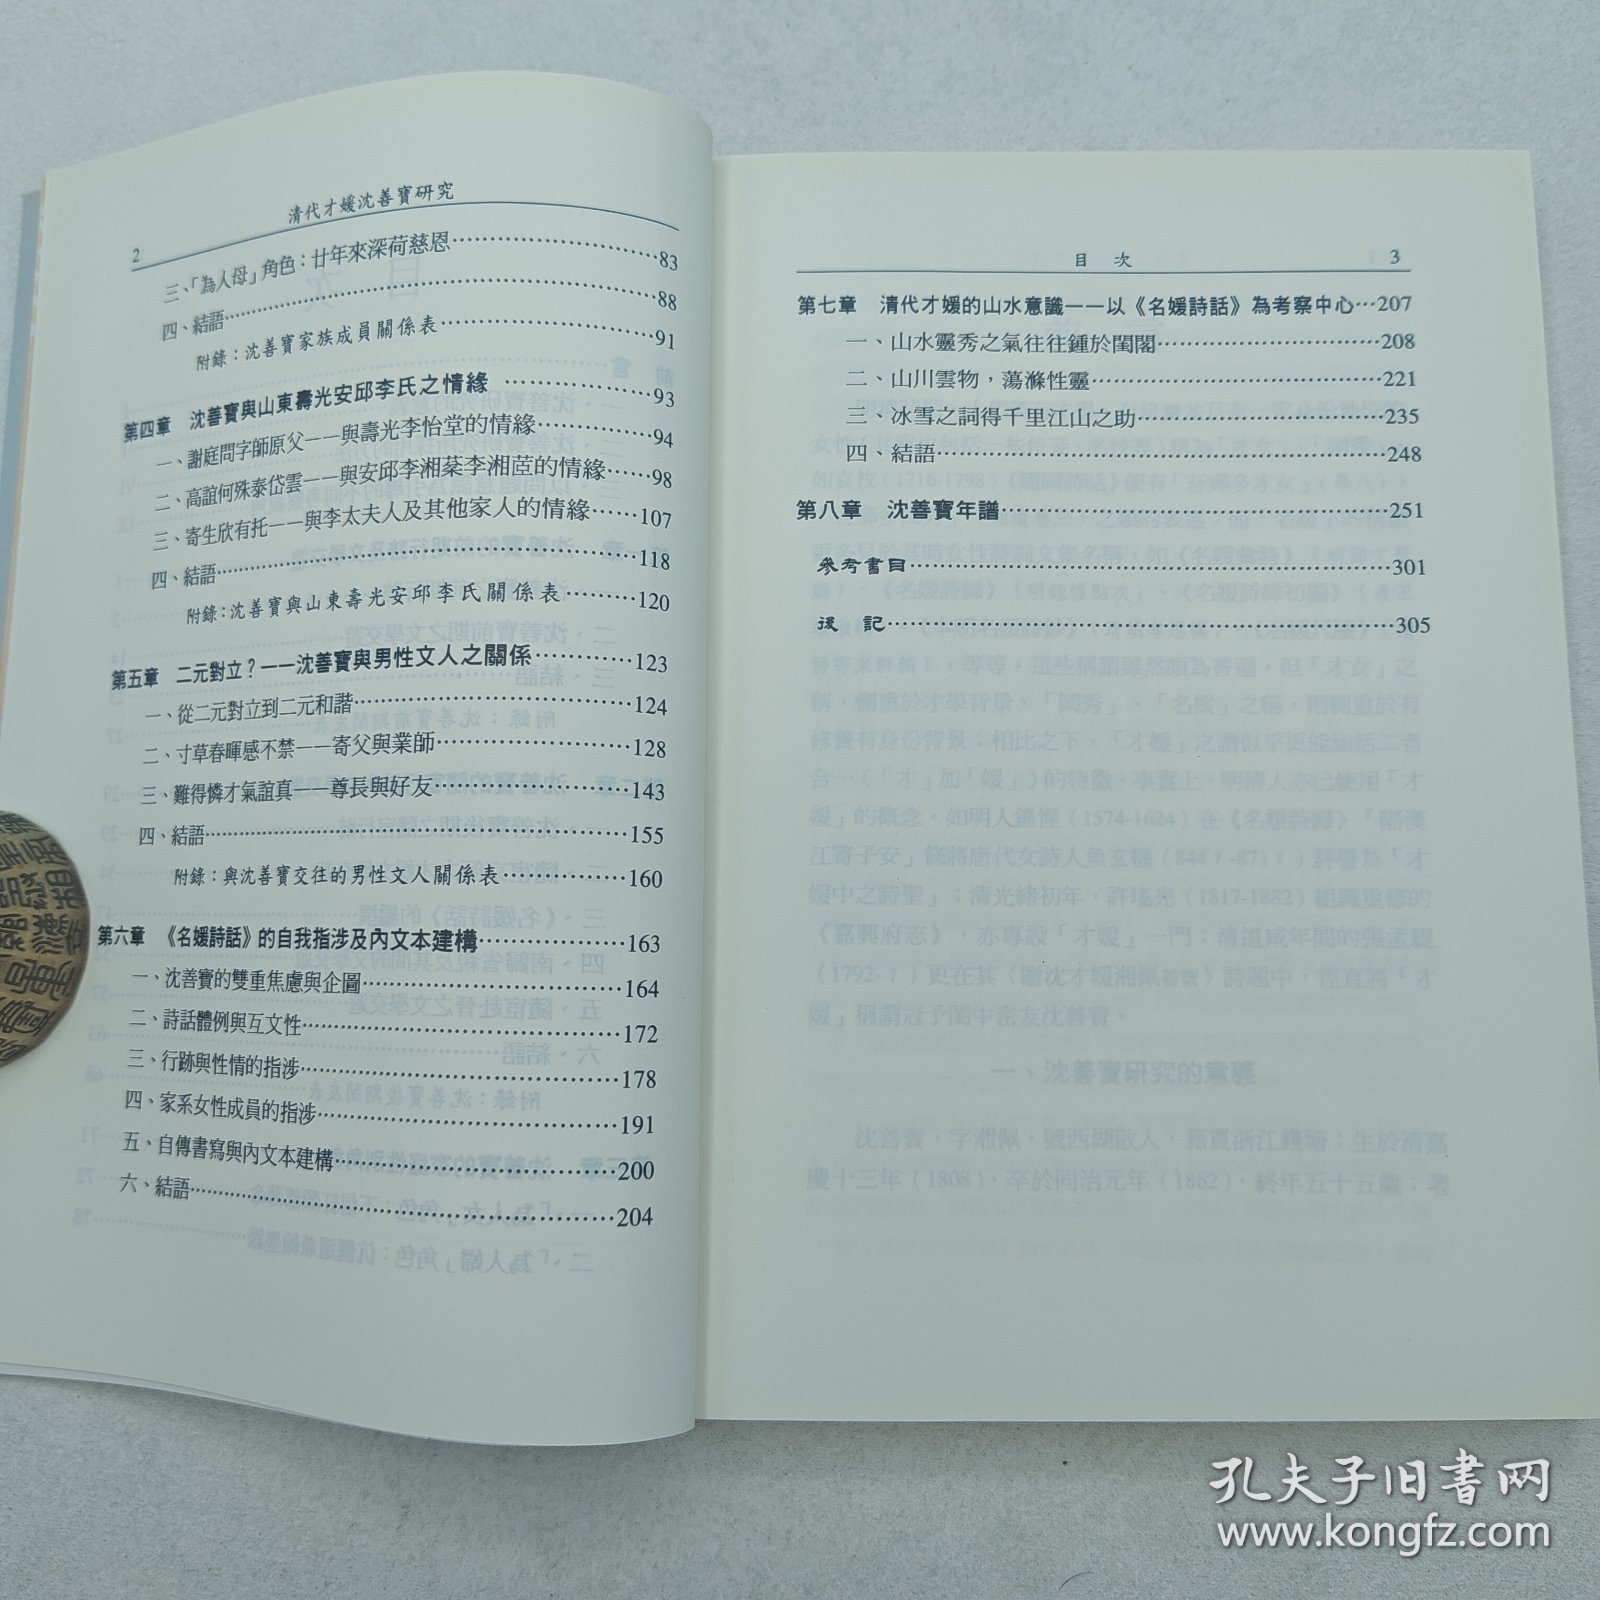 清代才媛沈善寶研究
2
三、「為人母」角色：廿年來深荷慈恩……83
四、結語……88
附錄：沈善寶家族成員關係表……91
第四章 沈善寶與山東壽光安邱李氏之情緣……93
一、謝庭問字師原父——與壽光李怡堂的情緣……94
二、高誼何殊泰岱雲——與安邱李湘棻李湘茝的情緣……98
三、寄生欣有托——與李太夫人及其他家人的情緣……107
四、結語……118
附錄：沈善寶與山東壽光安邱李氏關係表……120
第五章 二元對立？——沈善寶與男性文人之關係……123
一、從二元對立到二元和諧……124
二、寸草春暉感不禁——寄父與業師……128
三、難得憐才氣誼真——尊長與好友……143
四、結語……155
附錄：與沈善寶交往的男性文人關係表……160
第六章 《名媛詩話》的自我指涉及內文本建構……163
一、沈善寶的雙重焦慮與企圖……164
二、詩話體例與互文性……172
三、行跡與性情的指涉……178
四、家系女性成員的指涉……191
五、自傳書寫與內文本建構……200
六、結語……204
目 次 3
第七章 清代才媛的山水意識——以《名媛詩話》為考察中心…207
一、山水靈秀之氣往往鍾於閨閣……208
二、山川雲物，蕩滌性靈……221
三、冰雪之詞得千里江山之助……235
四、結語……248
第八章 沈善寶年譜……251
參考書目……301
後 記……305
孔夫子旧书网
www.kongfz.com